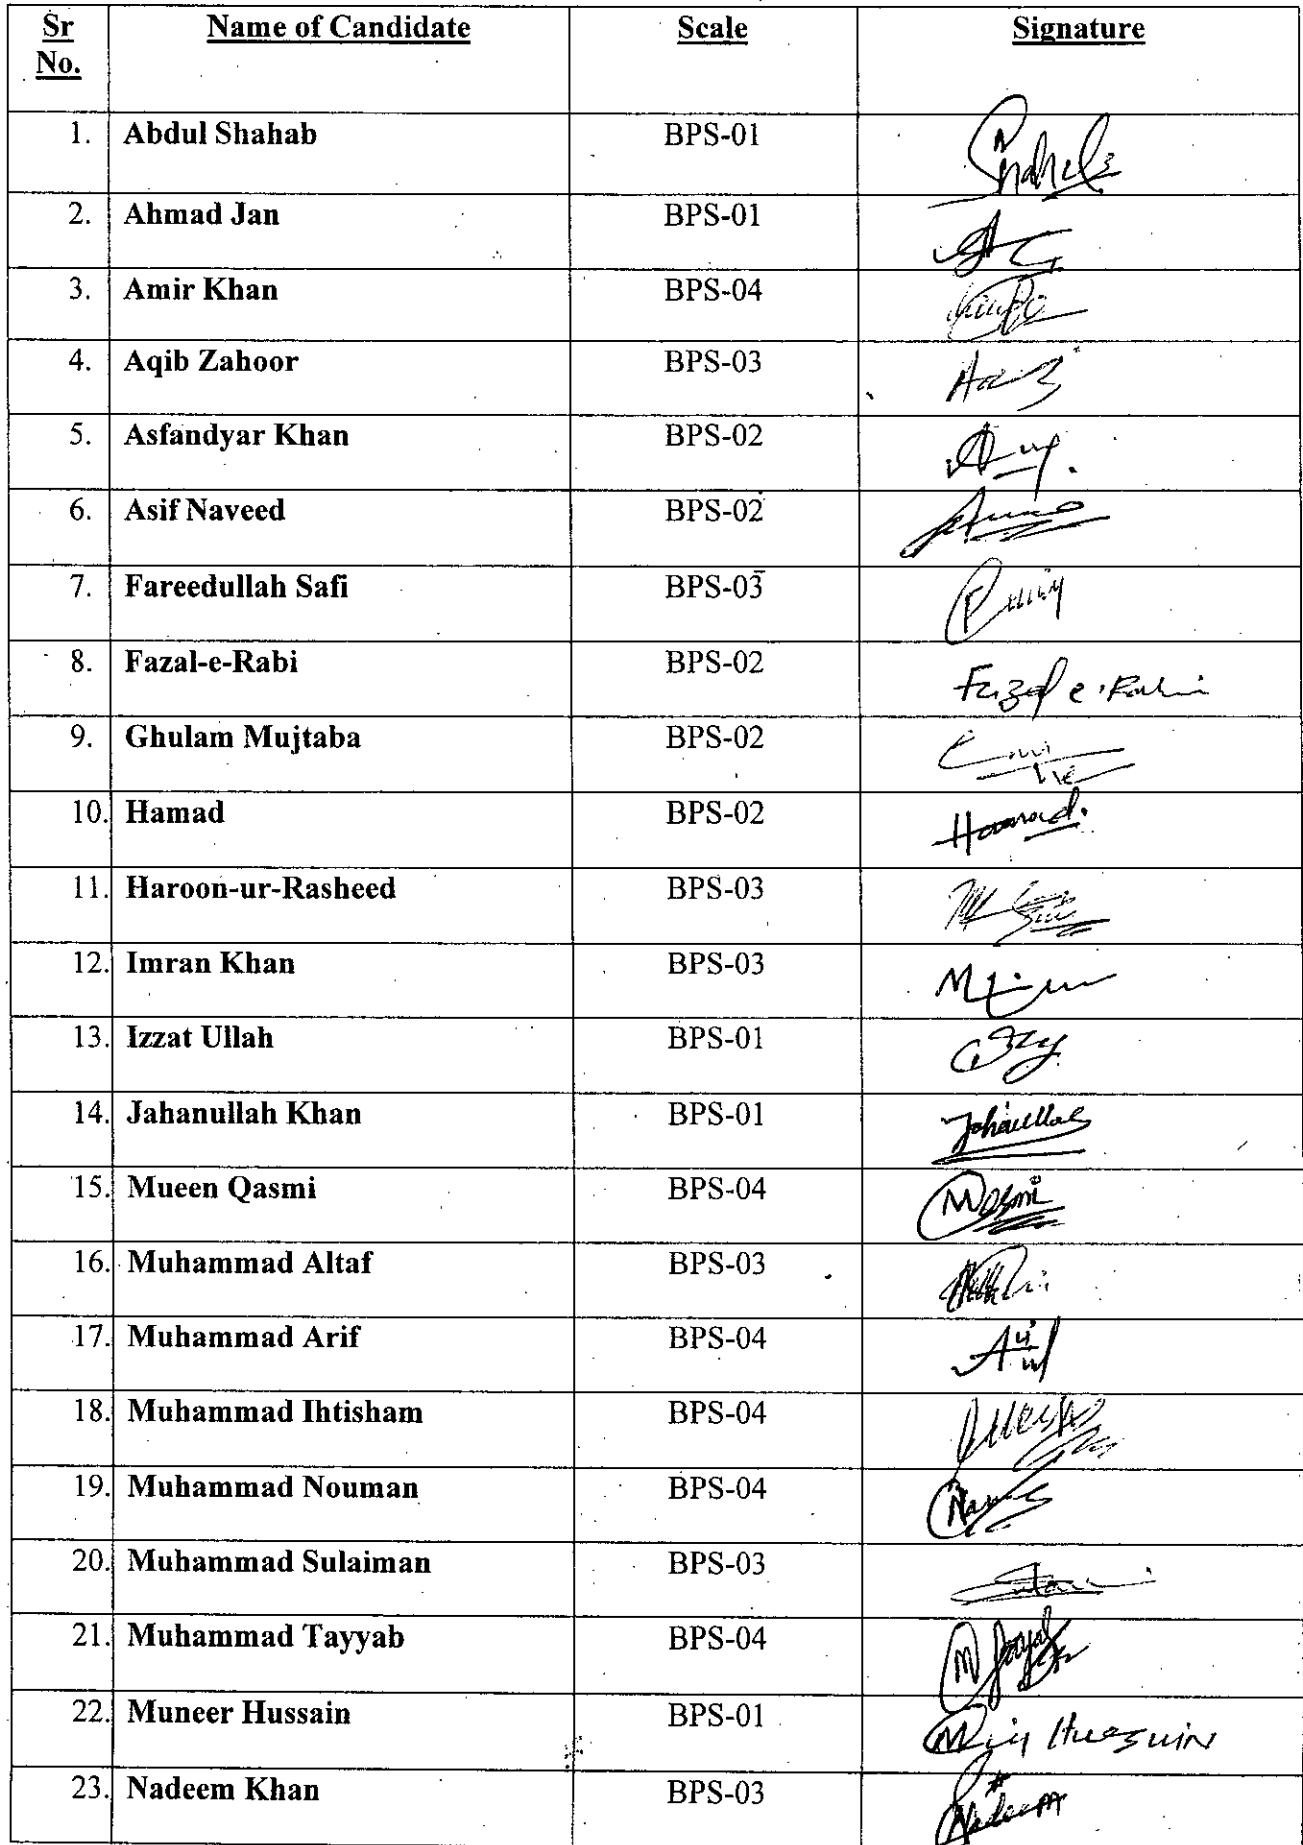 Sr No. Name of Candidate Scale Signature
1. Abdul Shahab BPS-01
2. Ahmad Jan BPS-01
3. Amir Khan BPS-04
4. Aqib Zahoor BPS-03
5. Asfandyar Khan BPS-02
6. Asif Naveed BPS-02
7. Fareedullah Safi BPS-03
8. Fazal-e-Rabi BPS-02 Fazal e Rabi
9. Ghulam Mujtaba BPS-02
10. Hamad BPS-02 Hamad.
11. Haroon-ur-Rasheed BPS-03
12. Imran Khan BPS-03
13. Izzat Ullah BPS-01
14. Jahanullah Khan BPS-01
15. Mueen Qasmi BPS-04
16. Muhammad Altaf BPS-03
17. Muhammad Arif BPS-04
18. Muhammad Ihtisham BPS-04
19. Muhammad Nouman BPS-04
20. Muhammad Sulaiman BPS-03
21. Muhammad Tayyab BPS-04
22. Muneer Hussain BPS-01 Hussain
23. Nadeem Khan BPS-03 Nadeem